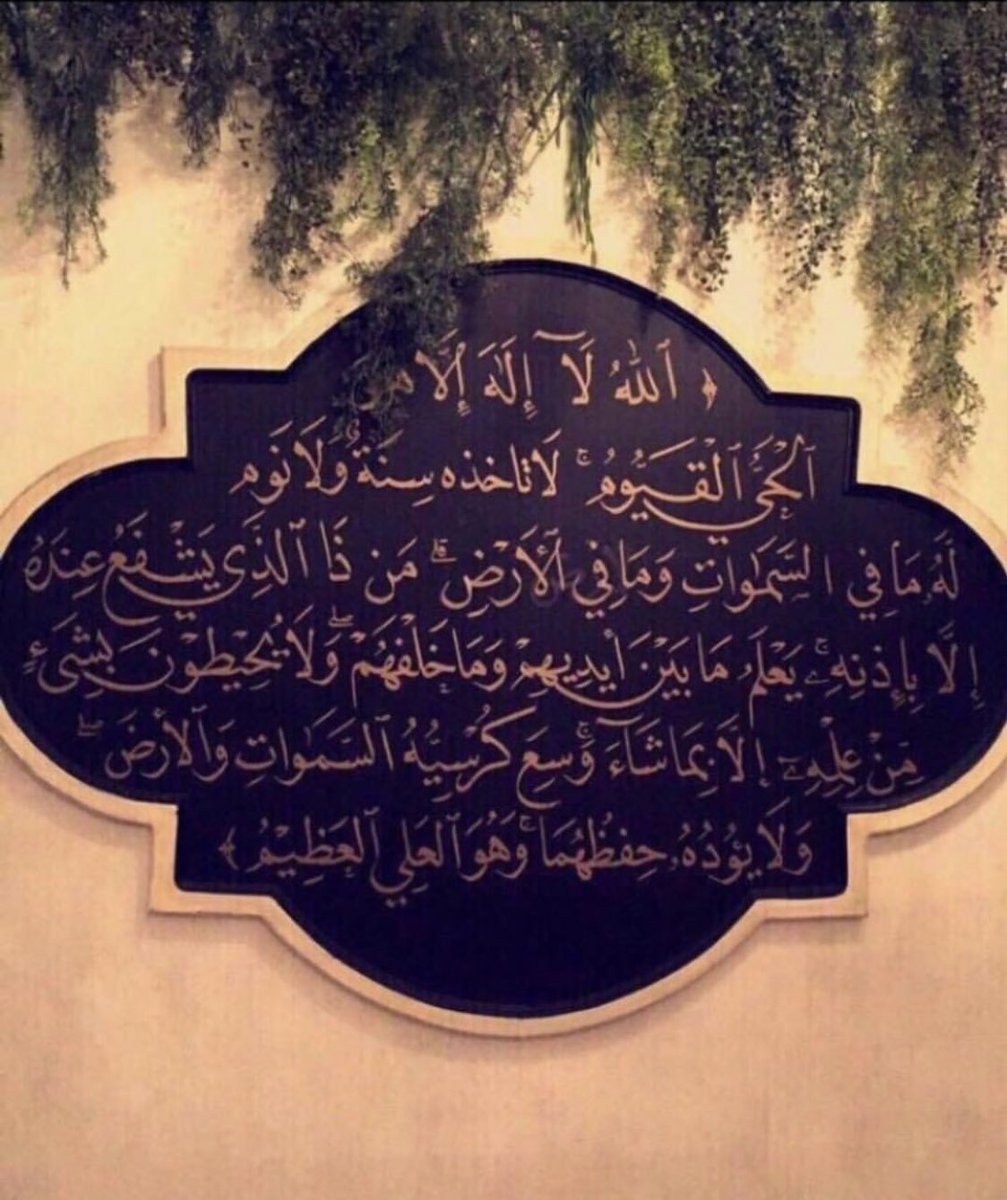 ﴿ ٱللَّهُ لَآ إِلَٰهَ إِلَّا
ٱلْحَيُّ ٱلْقَيُّومُ ۚ لَا تاخذه سِنَةٌ وَلَا نَوم
لَّهُۥ مَا فِي السَّمَٰوَاتِ وَمَا فِي ٱلْأَرْضِ ۗ مَن ذَا ٱلَّذِي يَشْفَعُ عِندَهُ
إِلَّا بِإِذْنِهِۦ ۚ يَعْلَمُ مَا بَيْنَ أَيْدِيهِمْ وَمَا خَلْفَهُمْ ۖ وَلَا يُحِيْطُونَ بِشَىْءٍ
مِّنْ عِلْمِهِۦٓ إِلَّا بِمَا شَآءَ ۚ وَسِعَ كُرْسِيُّهُ ٱلسَّمَٰوَاتِ وَٱلْأَرْضَ ۖ
وَلَا يَؤُدُهُۥ حِفْظُهُمَا ۚ وَهُوَ ٱلْعَلِي ٱلْعَظِيْمُ ﴾